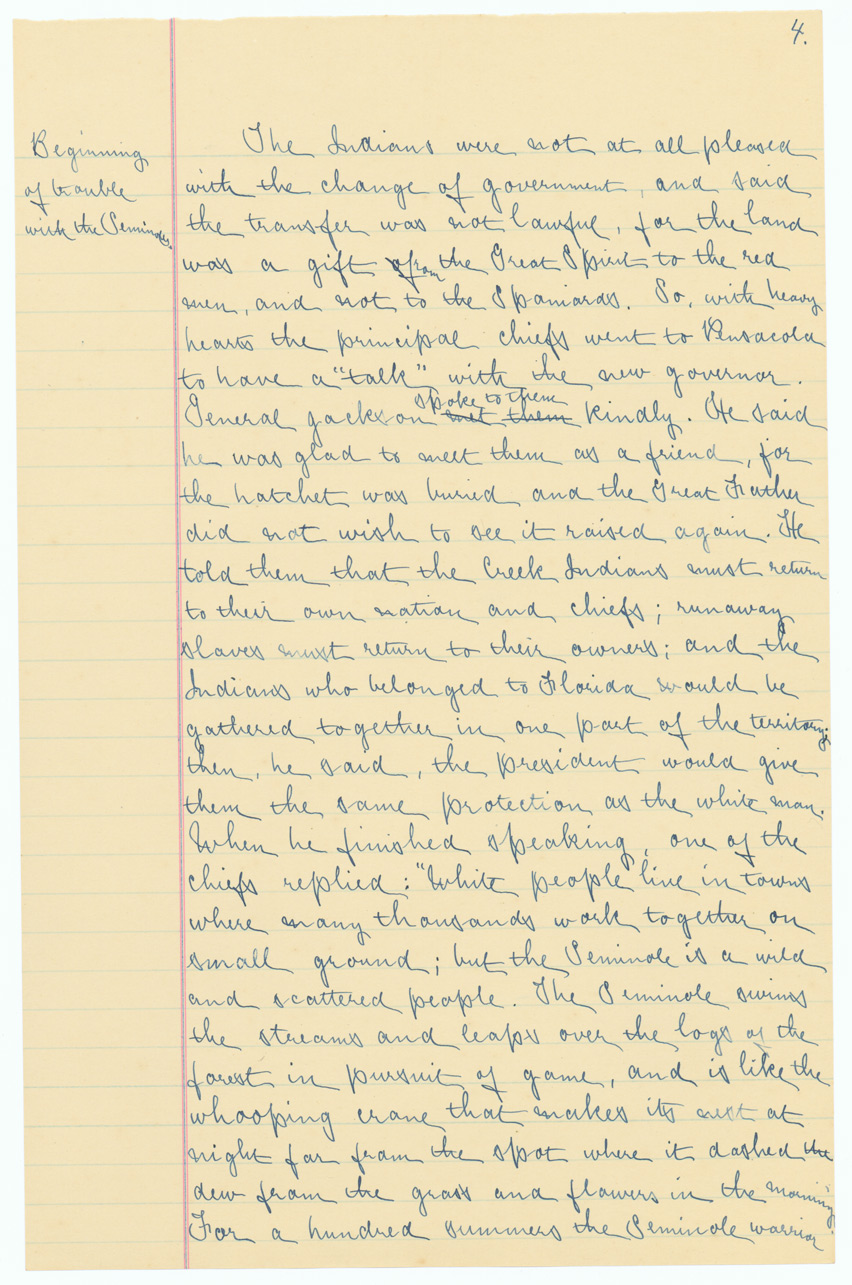 4.
Beginning
of trouble
with the Seminoles.
The Indians were not at all pleased
with the change of government, and said
the transfer was not lawful, for the land
was a gift from the Great Spirit to the red
men, and not to the Spaniards. So, with heavy
hearts the principal chiefs went to Pensacola
to have a "talk" with the new governor.
spoke to them
General Jackson met them kindly. He said
he was glad to meet them as a friend, for
the hatchet was buried and the Great Father
did not wish to see it raised again. He
told them that the Creek Indians must return
to their own nation and chiefs; runaway
slaves must return to their owners; and the
Indians who belonged to Florida would be
gathered together in one part of the territory;
then, he said, the president would give
them the same protection as the white man.
When he finished speaking, one of the
chiefs replied: "White people live in towns
where many thousands work together on
small ground; but the Seminole is a wild
and scattered people. The Seminole swims
the streams and leaps over the logs of the
forest in pursuit of game, and is like the
whooping crane that makes its nest at
night far from the spot where it dashed the
dew from the grass and flowers in the morning.
For a hundred summers the Seminole warrior